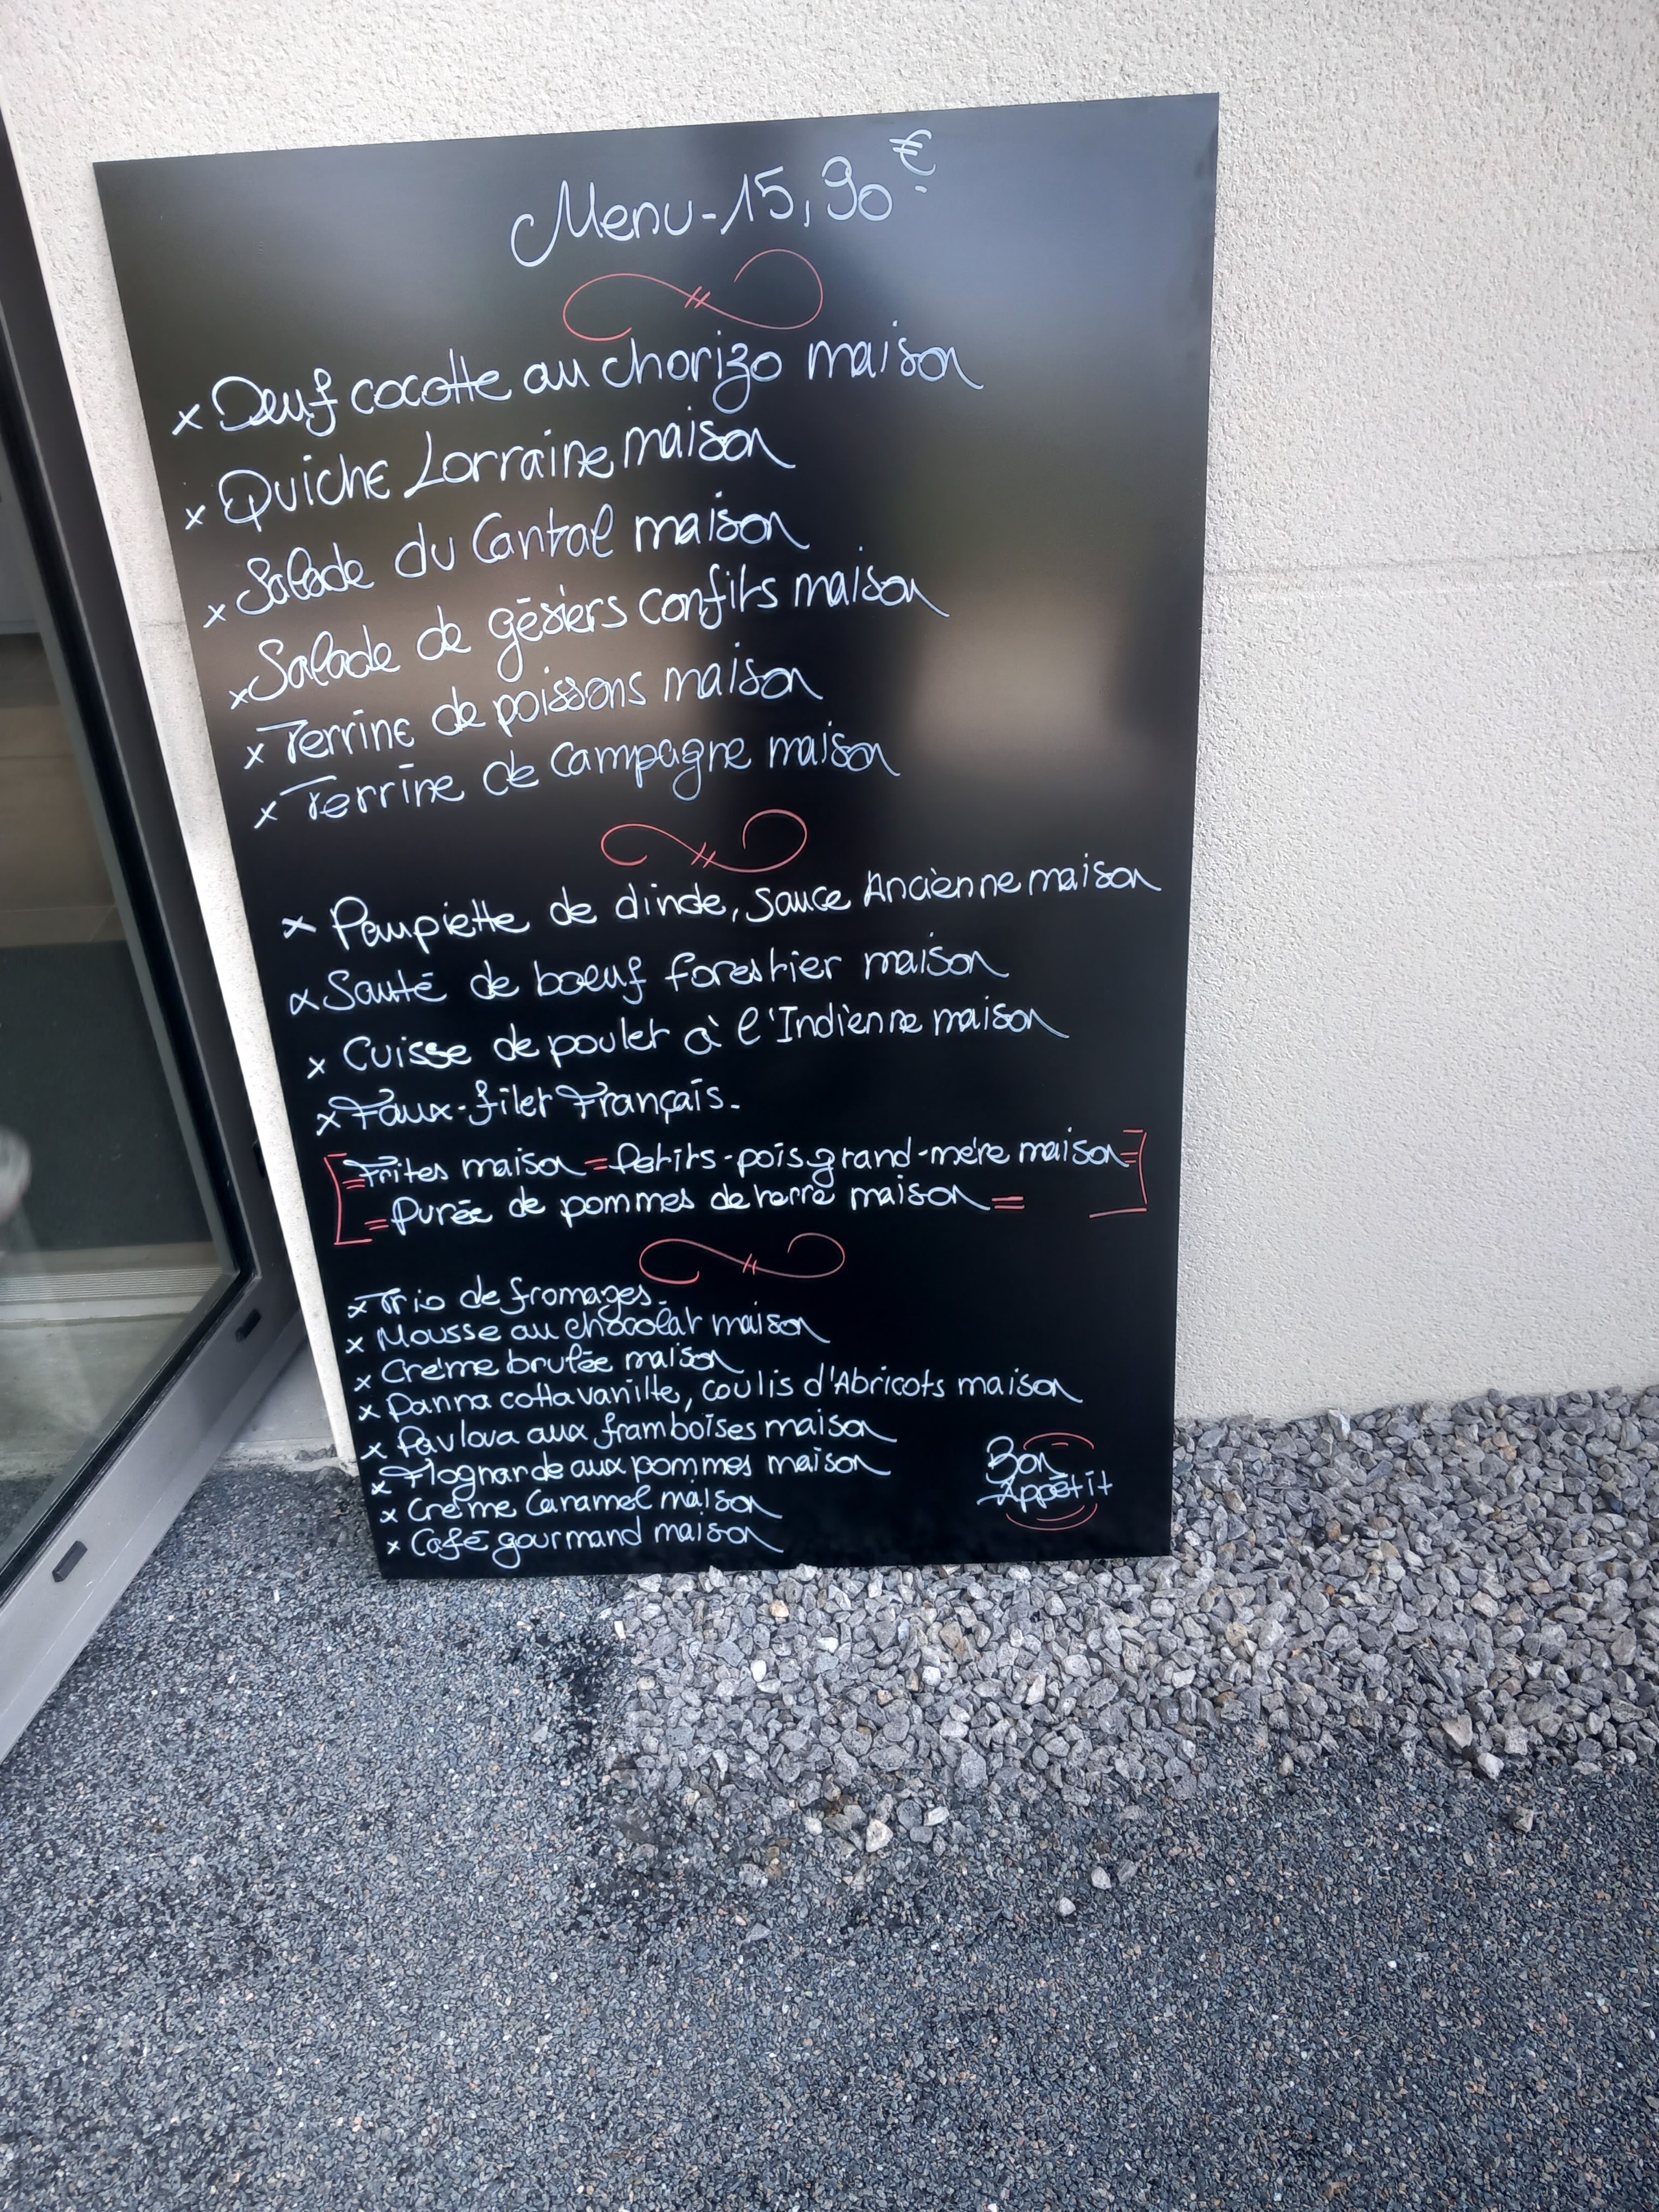 Menu-15,90€
x Oeuf cocotte au chorizo maison
x Quiche Lorraine maison
x Salade du Cantal maison
x Salade de gésiers confits maison
x Terrine de poissons maison
x Terrine de Campagne maison
x Paupiette de dinde, sauce Ancienne maison
x Sauté de boeuf forestier maison
x Cuisse de poulet à l'Indienne maison
x Faux-filet Français.
[=Frites maison=Petits-pois grand-mère maison=]
=Purée de pommes de terre maison=
x Trio de fromages.
x Mousse au chocolat maison
x Crème brulée maison
x Panna cotta vanille, coulis d'Abricots maison
x Pavlova aux framboises maison
x Flognarde aux pommes maison
x Crème Caramel maison
x Café gourmand maison
Bon
Appétit